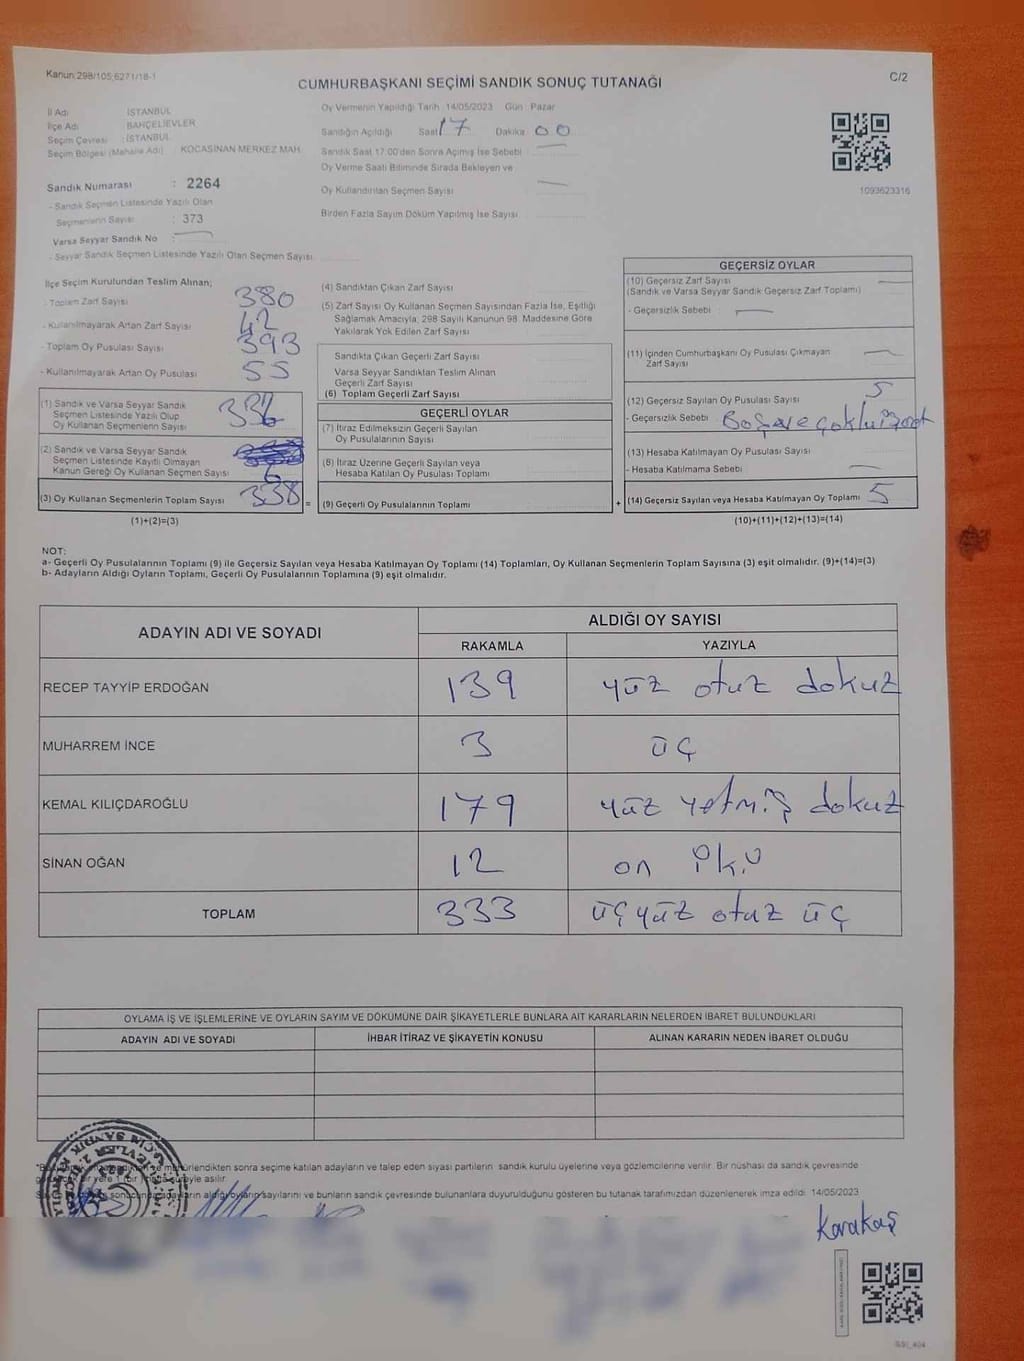 Kanun:298/105;6271/18-1
C/2
CUMHURBAŞKANI SEÇİMİ SANDIK SONUÇ TUTANAĞI
İl Adı : İSTANBUL
İlçe Adı : BAHÇELİEVLER
Seçim Çevresi : İSTANBUL
Seçim Bölgesi (Mahalle Adı) : KOCASİNAN MERKEZ MAH.
Sandık Numarası : 2264
- Sandık Seçmen Listesinde Yazılı Olan
Seçmenlerin Sayısı : 373
Varsa Seyyar Sandık No :
- Seyyar Sandık Seçmen Listesinde Yazılı Olan Seçmen Sayısı
Oy Vermenin Yapıldığı Tarih 14/05/2023 Gün : Pazar
Sandığın Açıldığı Saat 17 Dakika 00
Sandık Saat 17:00'den Sonra Açımış İse Sebebi :
Oy Verme Saati Bitiminde Sırada Bekleyen ve
Oy Kullandırılan Seçmen Sayısı
Birden Fazla Sayım Döküm Yapılmış İse Sayısı
1093623316
İlçe Seçim Kurulundan Teslim Alınan;
- Toplam Zarf Sayısı 380
- Kullanılmayarak Artan Zarf Sayısı 42
- Toplam Oy Pusulası Sayısı 393
- Kullanılmayarak Artan Oy Pusulası 55
(1) Sandık ve Varsa Seyyar Sandık
Seçmen Listesinde Yazılı Olup
Oy Kullanan Seçmenlerin Sayısı
(2) Sandık ve Varsa Seyyar Sandık
Seçmen Listesinde Kayıtlı Olmayan
Kanun Gereği Oy Kullanan Seçmen Sayısı
(3) Oy Kullanan Seçmenlerin Toplam Sayısı 338 =
(1)+(2)=(3)
(4) Sandıktan Çıkan Zarf Sayısı
(5) Zarf Sayısı Oy Kullanan Seçmen Sayısından Fazla İse, Eşitliği
Sağlamak Amacıyla; 298 Sayılı Kanunun 98. Maddesine Göre
Yakılarak Yok Edilen Zarf Sayısı
Sandıkta Çıkan Geçerli Zarf Sayısı
Varsa Seyyar Sandıktan Teslim Alınan
Geçerli Zarf Sayısı
(6) Toplam Geçerli Zarf Sayısı
GEÇERLİ OYLAR
(7) İtiraz Edilmeksizin Geçerli Sayılan
Oy Pusulalarının Sayısı
(8) İtiraz Üzerine Geçerli Sayılan veya
Hesaba Katılan Oy Pusulası Toplamı
(9) Geçerli Oy Pusulalarının Toplamı +
GEÇERSİZ OYLAR
(10) Geçersiz Zarf Sayısı
(Sandık ve Varsa Seyyar Sandık Geçersiz Zarf Toplamı)
- Geçersizlik Sebebi :
(11) İçinden Cumhurbaşkanı Oy Pusulası Çıkmayan
Zarf Sayısı
(12) Geçersiz Sayılan Oy Pusulası Sayısı 5
- Geçersizlik Sebebi :
(13) Hesaba Katılmayan Oy Pusulası Sayısı
- Hesaba Katılmama Sebebi :
(14) Geçersiz Sayılan veya Hesaba Katılmayan Oy Toplamı 5
(10)+(11)+(12)+(13)=(14)
NOT:
a- Geçerli Oy Pusulalarının Toplamı (9) ile Geçersiz Sayılan veya Hesaba Katılmayan Oy Toplamı (14) Toplamları, Oy Kullanan Seçmenlerin Toplam Sayısına (3) eşit olmalıdır. (9)+(14)=(3)
b- Adayların Aldığı Oyların Toplamı, Geçerli Oy Pusulalarının Toplamına (9) eşit olmalıdır.
ADAYIN ADI VE SOYADI
ALDIĞI OY SAYISI
RAKAMLA YAZIYLA
RECEP TAYYİP ERDOĞAN 139 yüz otuz dokuz
MUHARREM İNCE 3 üç
KEMAL KILIÇDAROĞLU 179 yüz yetmiş dokuz
SİNAN OĞAN 12 on iki
TOPLAM 333 üçyüz otuz üç
OYLAMA İŞ VE İŞLEMLERİNE VE OYLARIN SAYIM VE DÖKÜMÜNE DAİR ŞİKAYETLERLE BUNLARA AİT KARARLARIN NELERDEN İBARET BULUNDUKLARI
ADAYIN ADI VE SOYADI İHBAR İTİRAZ VE ŞİKAYETİN KONUSU ALINAN KARARIN NEDEN İBARET OLDUĞU
mühürlendikten sonra seçime katılan adayların ve talep eden siyasi partilerin sandık kurulu üyelerine veya gözlemcilerine verilir. Bir nüshası da sandık çevresinde
asılır.
adayların aldığı oyların sayılarını ve bunların sandık çevresinde bulunanlara duyurulduğunu gösteren bu tutanak tarafımızdan düzenlenerek imza edildi. 14/05/2023
Karakaş